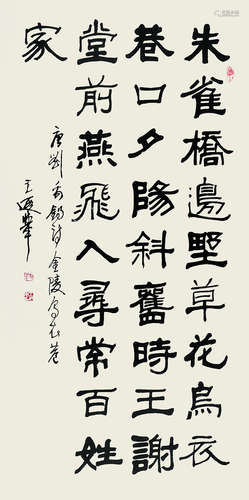 朱雀橋邊野草花烏衣
巷口夕陽斜舊時王謝
堂前燕飛入尋常百姓
家
唐劉禹錫詩金陵烏衣巷
王遐舉